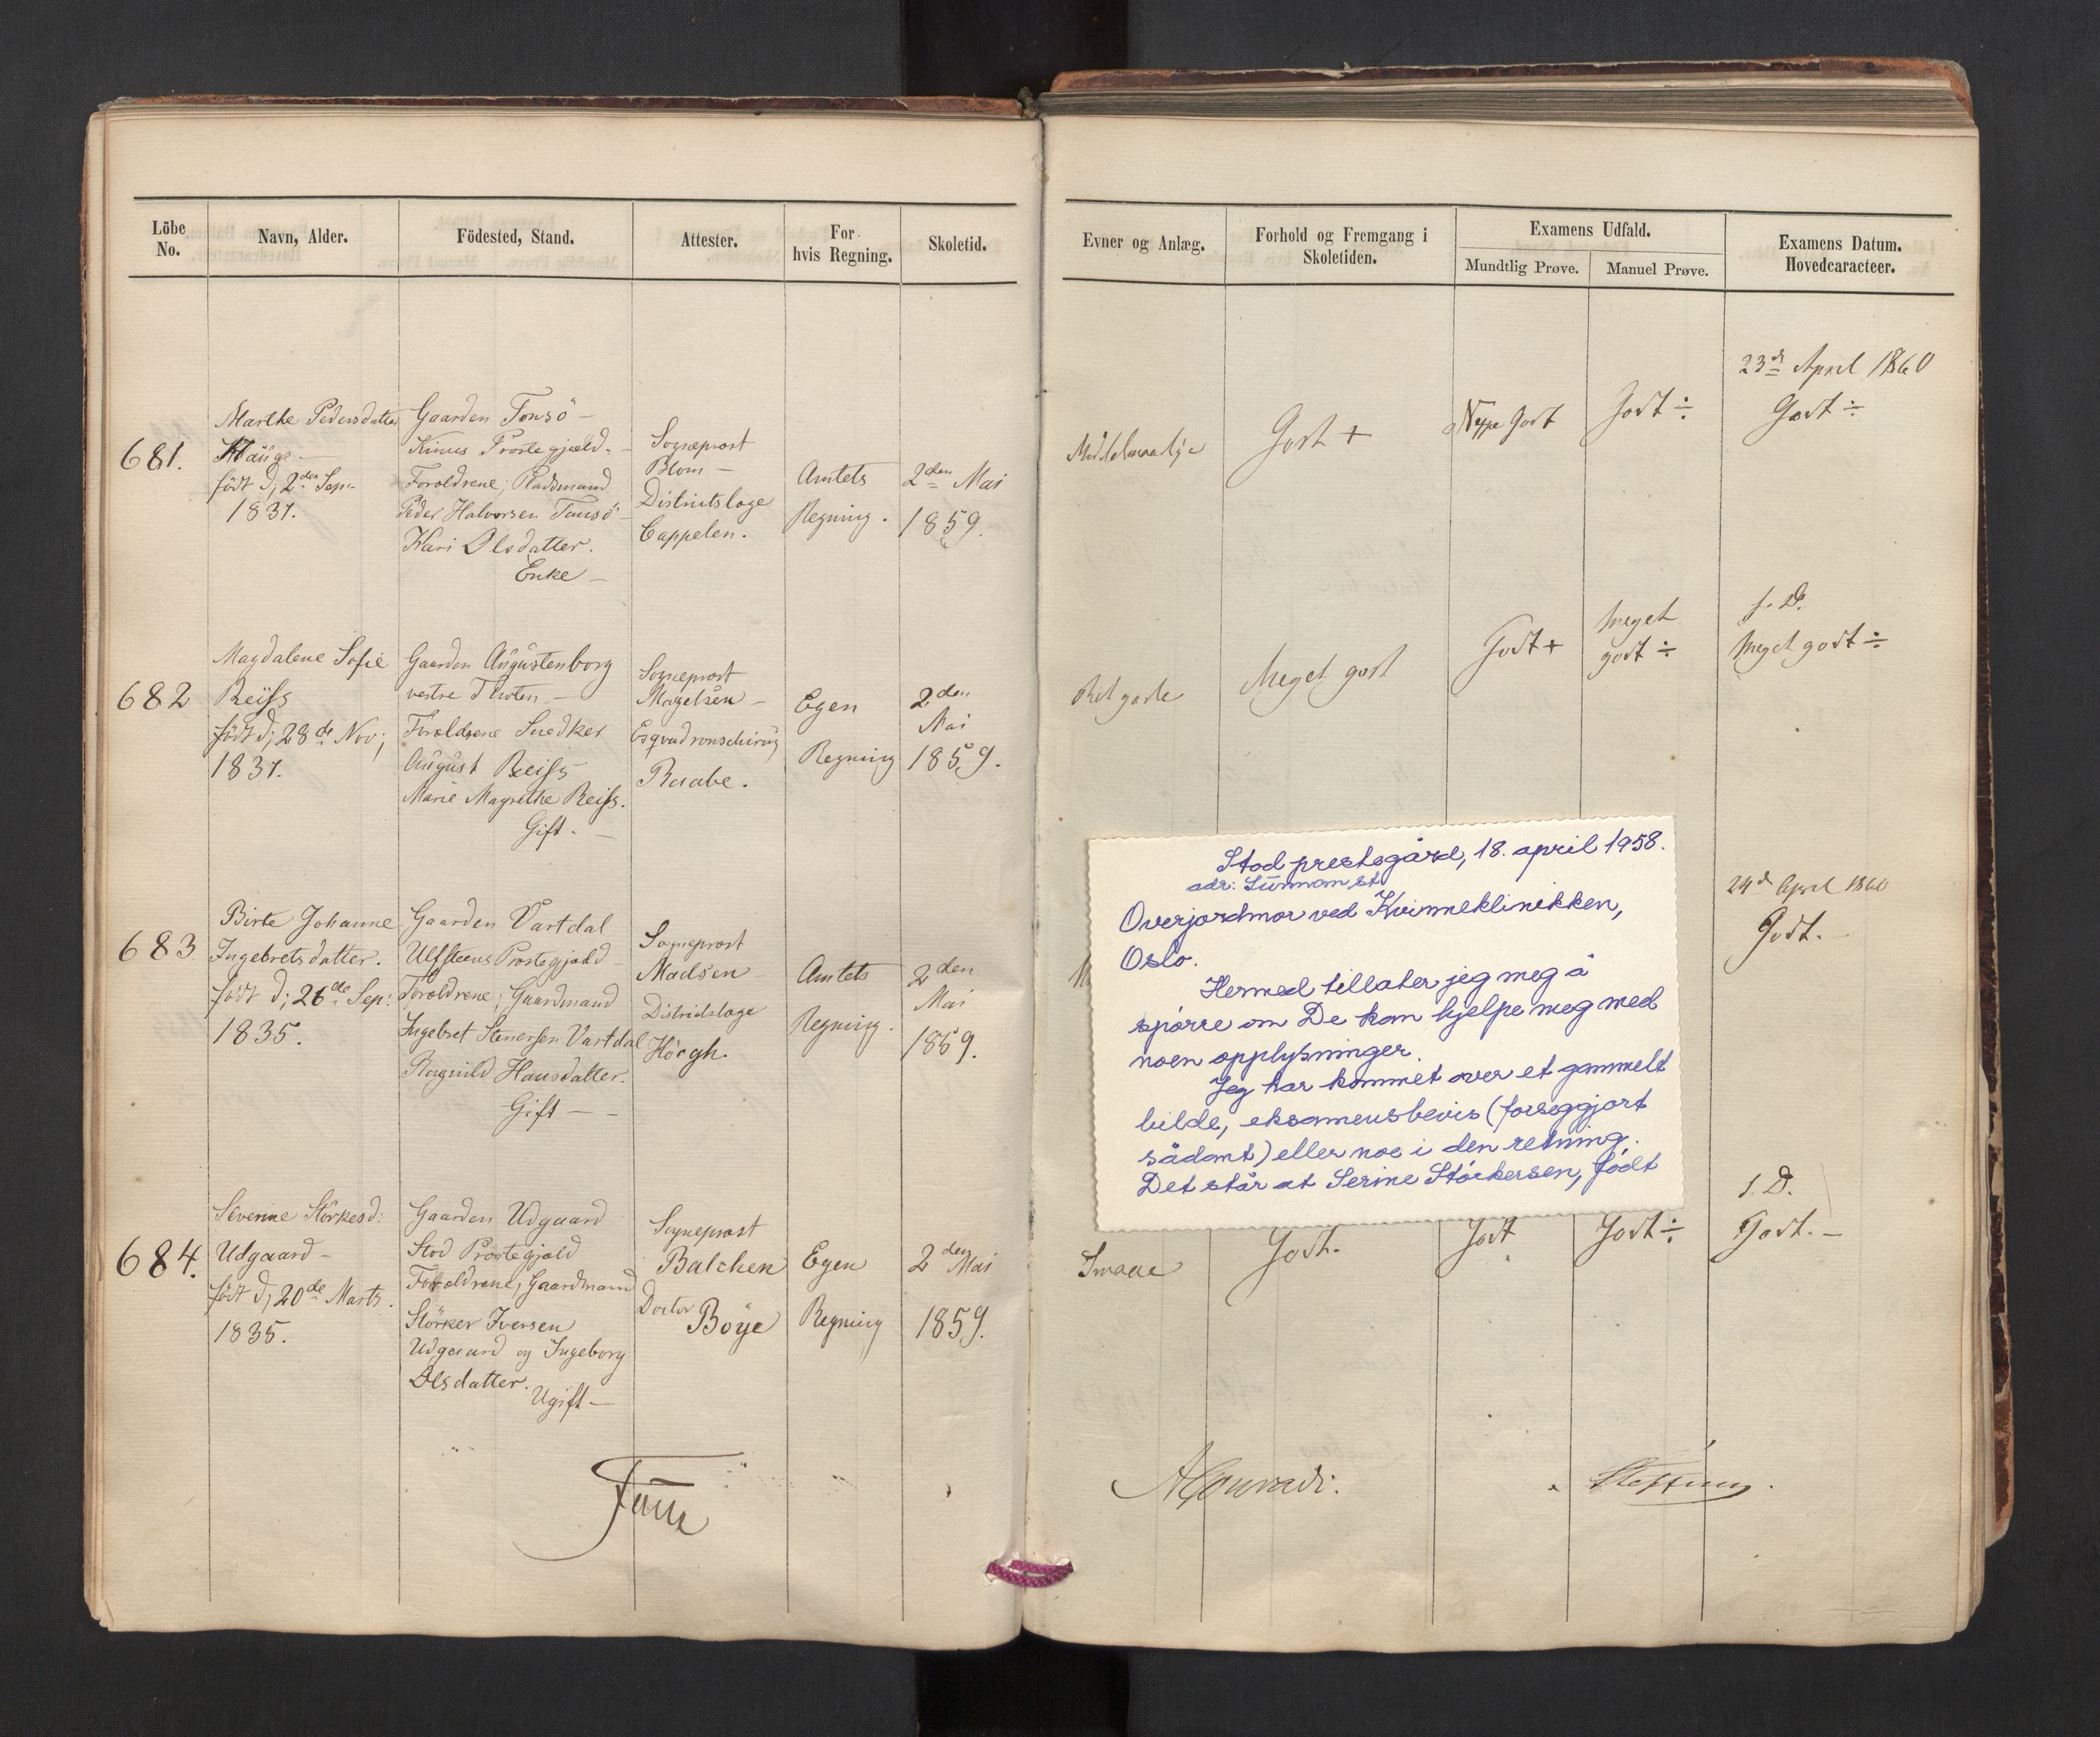 Löbe No.
Navn, Alder.
Födested, Stand.
Attester.
For hvis Regning.
Skoletid.
Evner og Anlæg.
Forhold og Fremgang i Skoletiden.
Examens Udfald.
Mundtlig Prøve.
Manuel Prøve.
Examens Datum. Hovedcaracteer.
681.
Marthe Pedersdatter
Hauge —
født d; 2den Sep.
1837.
Gaarden Tonsö —
Kinns Præstegjæld. —
Forældrene; Pladsmand
Peder Halvorsen Tonsö —
Kari Olsdatter.
Enke —
Sogneprost
Blom —
Districtslæge
Cappelen.
Amtets
Regning.
2den Mai
1859.
Middelmaadige
Godt +
Neppe Godt
Godt ÷
23de April 1860
Godt ÷
682
Magdalene Sofie
Reiss
født d; 28de Nov;
1837.
Gaarden Augustenborg
vestre Thoten —
Forældrene Snedker
August Reiss
Marie Magrethe Reiss.
Gift. —
Sogneprost
Magelsen —
Esqvadronschirurg
Raabe.
Egen
Regning
2den
Mai
1859.
Ret gode
Meget godt
Godt +
Meget
godt ÷
s. D.
Meget godt ÷
683
Birte Johanne
Ingebretsdatter.
født d; 26de Sep:
1835.
Gaarden Vartdal
Ulfsteens Præstegjæld —
Forældrene; Gaardmand
Ingebret Steenersen Vartdal
Ragnild Hansdatter.
Gift — —
Sogneprost
Madsen —
Districtslæge
Höegh.
Amtets
Regning.
2den
Mai
1859.
24de April 1860
Godt. —
684.
Severine Störkesd:
Udgaard —
født d; 20de Marts.
1835.
Gaarden Udgaard
Stod Præstegjæld
Forældrene; Gaardmand
Störker Iversen
Udgaard og Ingeborg
Olsdatter.
Ugift —
Sogneprost
Balchen
Doctor
Boye
Egen
Regning
2den Mai
1859.
Smaae
Godt.
Godt
Godt ÷
s. D.
Godt. —
Stod prestegård, 18. april 1958.
adr: Sunnan st.
Overjordmor ved Kvinneklinikken,
Oslo.
Hermed tillater jeg meg å
spørre om De kan hjelpe meg med
noen opplysninger.
Jeg har kommet over et gammelt
bilde, eksamensbevis (forseggjort
sådant) eller noe i den retning.
Det står at Serine Störkersen, født
Faye
AConradi.
Steffens.